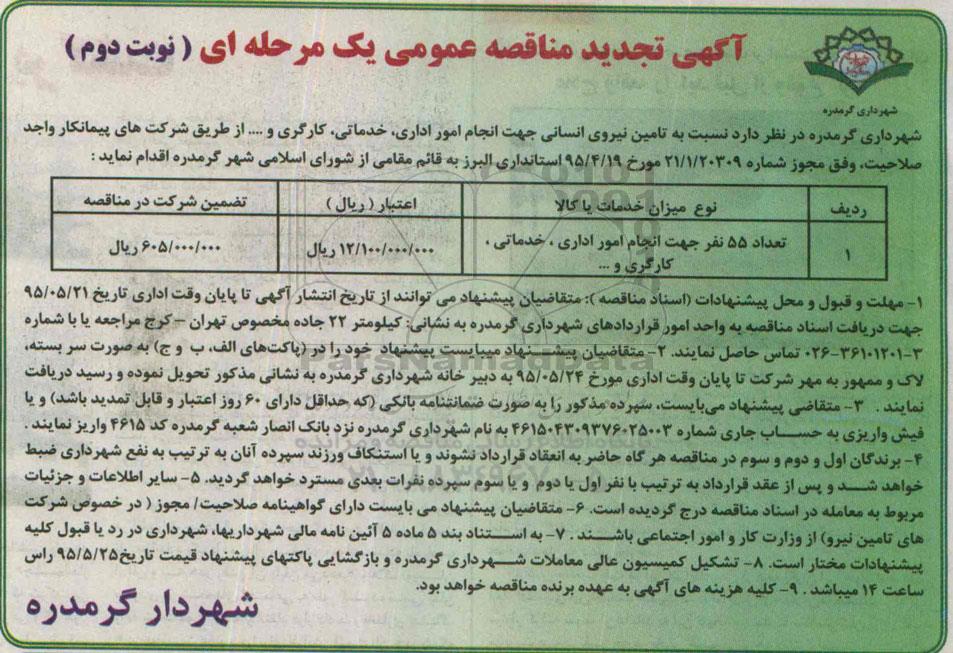 آگهی تجدید مناقصه عمومی یک مرحله ای ( نوبت دوم )
شهرداری گرمدره
شهرداری گرمدره در نظر دارد نسبت به تامین نیروی انسانی جهت انجام امور اداری، خدماتی، کارگری و .... از طریق شرکت های پیمانکار واجد
صلاحیت، وفق مجوز شماره ۲۱/۱/۲۰۳۰۹ مورخ ۹۵/۴/۱۹ استانداری البرز به قائم مقامی از شورای اسلامی شهر گرمدره اقدام نماید :
ردیف نوع میزان خدمات یا کالا اعتبار ( ریال ) تضمین شرکت در مناقصه
۱ تعداد ۵۵ نفر جهت انجام امور اداری ، خدماتی ، ۱۲/۱۰۰/۰۰۰/۰۰۰ ریال ۶۰۵/۰۰۰/۰۰۰ ریال
کارگری و ...
۱- مهلت و قبول و محل پیشنهادات (اسناد مناقصه ): متقاضیان پیشنهاد می توانند از تاریخ انتشار آگهی تا پایان وقت اداری تاریخ ۹۵/۰۵/۲۱
جهت دریافت اسناد مناقصه به واحد امور قراردادهای شهرداری گرمدره به نشانی: کیلومتر ۲۲ جاده مخصوص تهران – کرج مراجعه یا با شماره
۳-۰۲۶-۳۶۱۰۱۲۰۱ تماس حاصل نمایند. ۲- متقاضیان پیشنهاد میبایست پیشنهاد خود را در (پاکت‌های الف، ب و ج) به صورت سر بسته،
لاک و ممهور به مهر شرکت تا پایان وقت اداری مورخ ۹۵/۰۵/۲۴ به دبیر خانه شهرداری گرمدره به نشانی مذکور تحویل نموده و رسید دریافت
نمایند . ۳- متقاضی پیشنهاد می‌بایست، سپرده مذکور را به صورت ضمانتنامه بانکی (که حداقل دارای ۶۰ روز اعتبار و قابل تمدید باشد) و یا
فیش واریزی به حساب جاری شماره ۴۶۱۵۰۴۳۰۹۳۷۶۰۲۵۰۰۳ به نام شهرداری گرمدره نزد بانک انصار شعبه گرمدره کد ۴۶۱۵ واریز نمایند .
۴- برندگان اول و دوم و سوم در مناقصه هر گاه حاضر به انعقاد قرارداد نشوند و یا استنکاف ورزند سپرده آنان به ترتیب به نفع شهرداری ضبط
خواهد شد و پس از عقد قرارداد به ترتیب با نفر اول یا دوم و یا سوم سپرده نفرات بعدی مسترد خواهد گردید. ۵- سایر اطلاعات و جزئیات
مربوط به معامله در اسناد مناقصه درج گردیده است. ۶- متقاضیان پیشنهاد می بایست دارای گواهینامه صلاحیت/ مجوز ( در خصوص شرکت
های تامین نیرو) از وزارت کار و امور اجتماعی باشند . ۷- به استناد بند ۵ ماده ۵ آئین نامه مالی شهرداریها، شهرداری در رد یا قبول کلیه
پیشنهادات مختار است. ۸- تشکیل کمیسیون عالی معاملات شهرداری گرمدره و بازگشایی پاکتهای پیشنهاد قیمت تاریخ ۹۵/۵/۲۵ راس
ساعت ۱۴ میباشد . ۹- کلیه هزینه های آگهی به عهده برنده مناقصه خواهد بود.
شهردار گرمدره